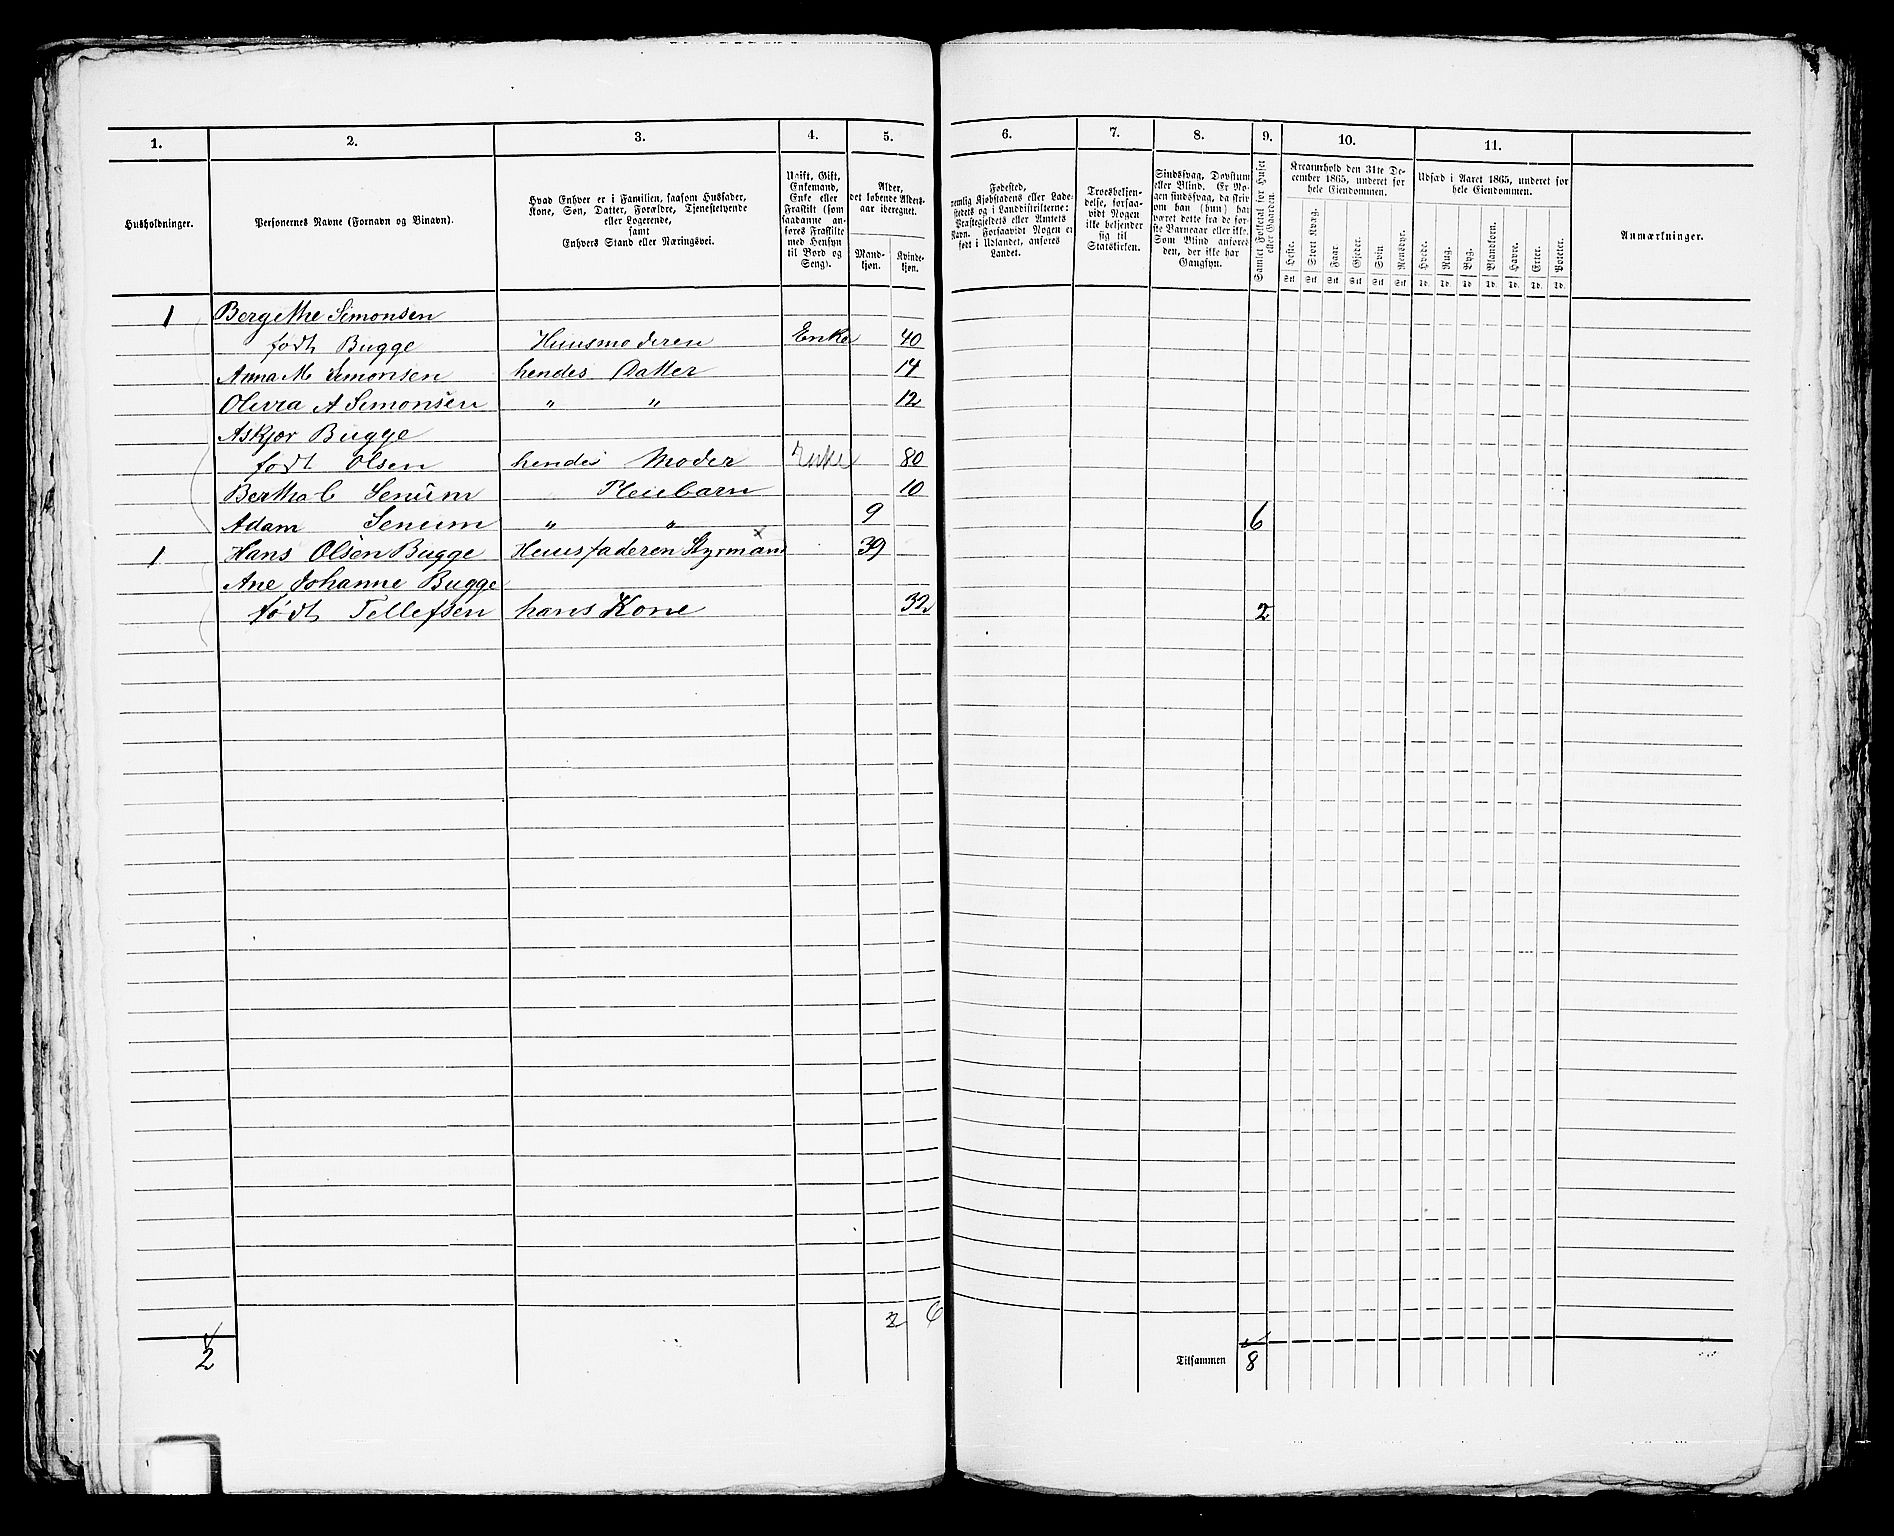 1. 2. 3. 4. 5. 6. 7. 8. 9. 10. 11.
Husholdninger.
Personernes Navne (Fornavn og Binavn).
Hvad Enhver er i Familien, saasom Husfader,
Kone, Søn, Datter, Forældre, Tjenestetyende
eller Logerende,
samt
Enhvers Stand eller Næringsvei.
Ugift, Gift,
Enkemand,
Enke eller
Fraskilt (som
saadanne an-
føres Fraskilte
med Hensyn
til Bord og
Seng).
Alder,
det løbende Alders-
aar iberegnet.
Mand-
kjøn.
Kvinde-
kjøn.
Fødested,
nemlig Kjøbstadens eller Lade-
stedets og i Landdistrikterne:
Præstegjeldets eller Amtets
Navn. Forsaavidt Nogen er
født i Udlandet, anføres
Landet.
Troesbekjen-
delse, forsaa-
vidt Nogen
ikke bekjender
sig til
Statskirken.
Sindssvag, Døvstum
eller Blind. Er No-
gen sindssvag, da skriv
om han (hun) har
været dette fra de før-
ste Barneaar eller ikke.
Som Blind anføres
den, der ikke har
Gangsyn.
Samlet Folketal for Huset
eller Gaarden.
Kreaturhold den 31te De-
cember 1865, underet for
hele Eiendommen.
Heste. Stort Kvæg. Faar Gjeder. Svin Rensdyr.
Stk Stk Stk Stk Stk Stk
Udsæd i Aaret 1865, underet for
hele Eiendommen.
Hvede. Rug. Byg. Blandkorn. Havre. Erter. Poteter.
Td. Td. Td. Td. Td. Td. Td.
Anmærkninger.
1 Bergethe Simonsen
født Bugge Huusmoderen Enke 40
Anna M Simonsen hendes Datter 14
Olivia A Simonsen " " 12
Askjør Bugge
født Olsen hendes Moder Enke 80
Bertha C Senum " Pleiebarn 10
Adam Senum " " 9 6
1 Hans Olsen Bugge Huusfaderen Styrmand 39
Ane Johanne Bugge
født Tellefsen hans Kone 32 2
2 6
2 Tilsammen 8